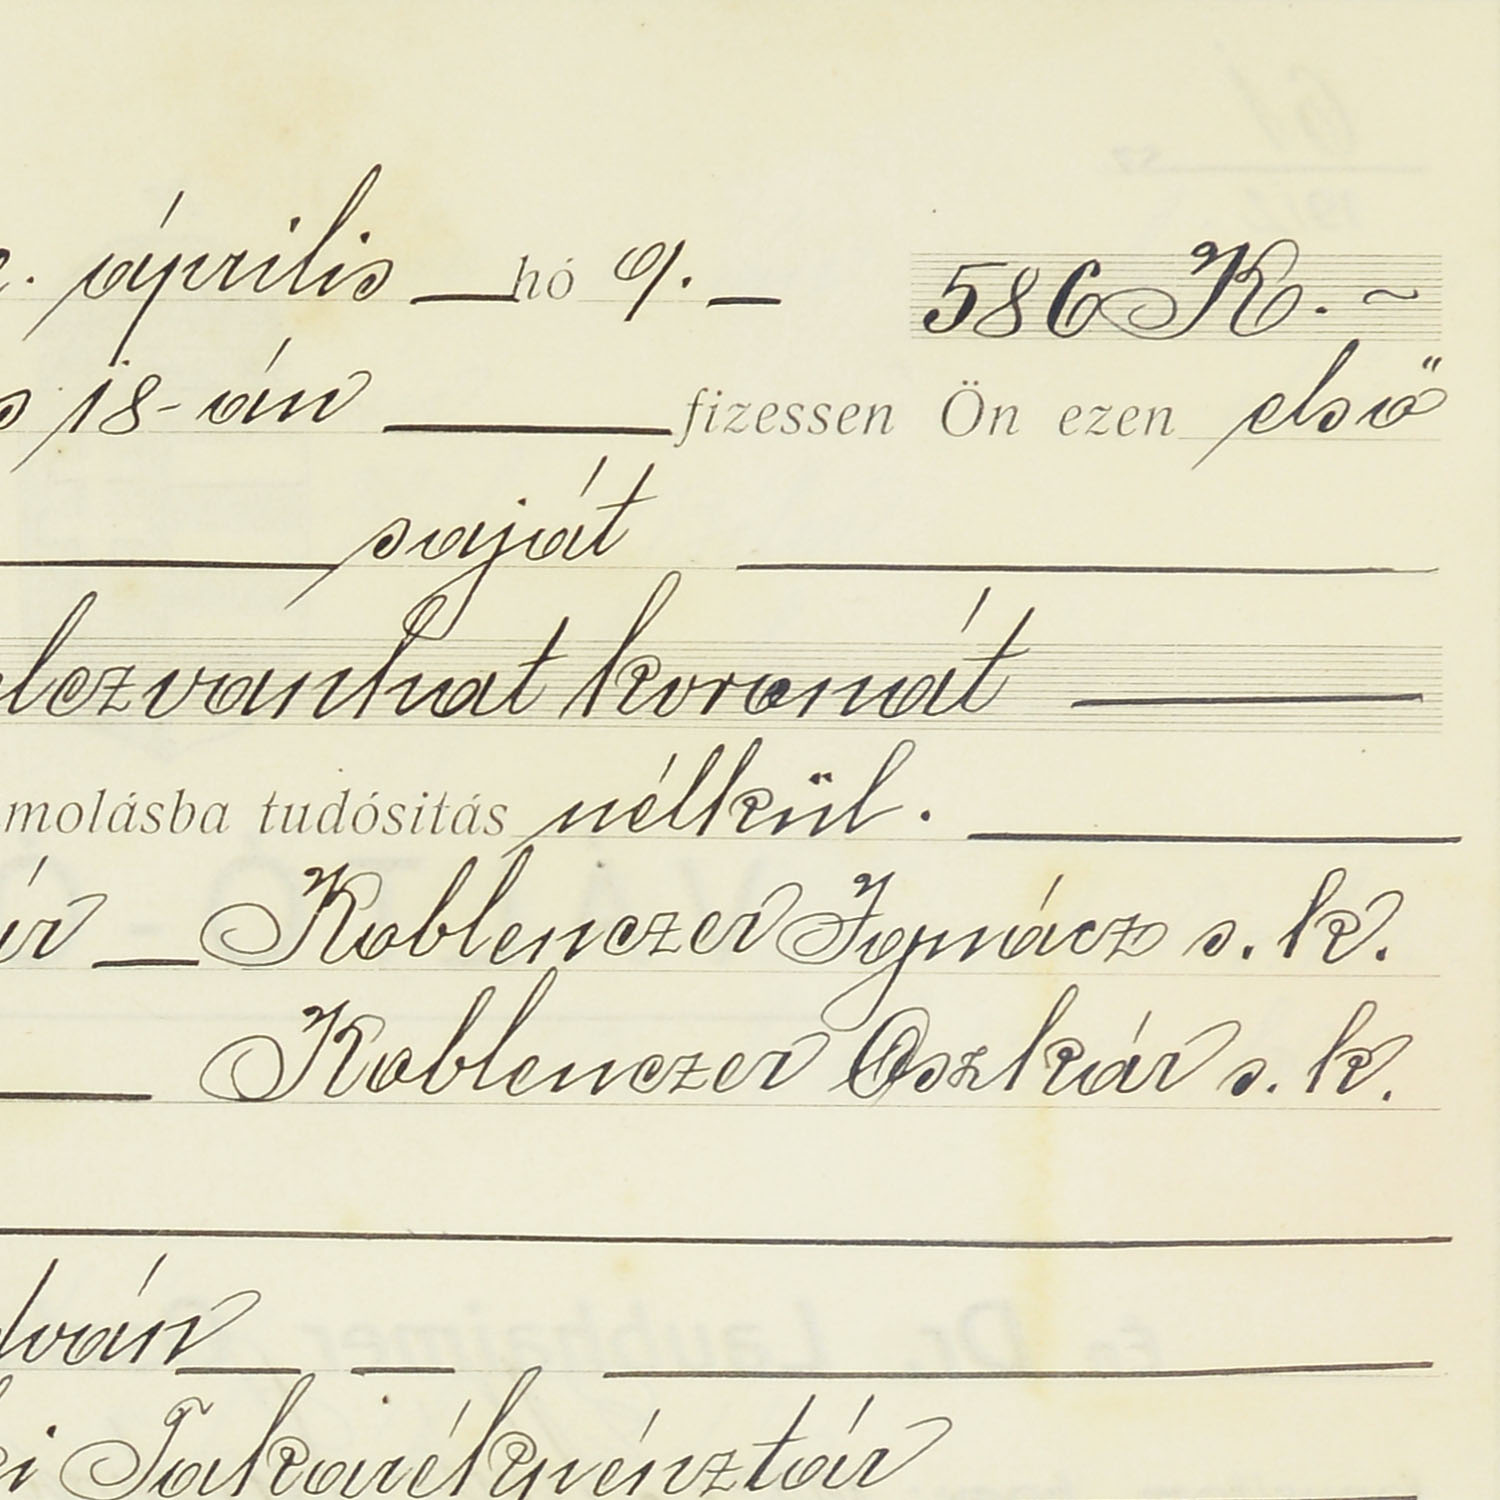 április hó 9. 586 K. ~
18-án fizessen Ön ezen első
saját
lczvanhat koronát
molásba tudósitás nélkül.
ár Koblenczer Ignácz s. k.
Koblenczer Oszkár s. k.
tván
ki Takarékpénztár